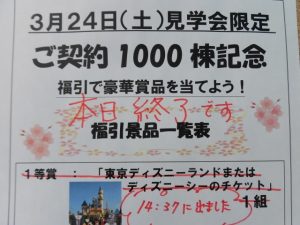 3月24日(土)見学会限定
ご契約1000棟記念
福引で豪華賞品を当てよう!
本日終了です
福引景品一覧表
1等賞:「東京ディズニーランドまたは
ディズニーシーのチケット」
1組
14:37に出ました